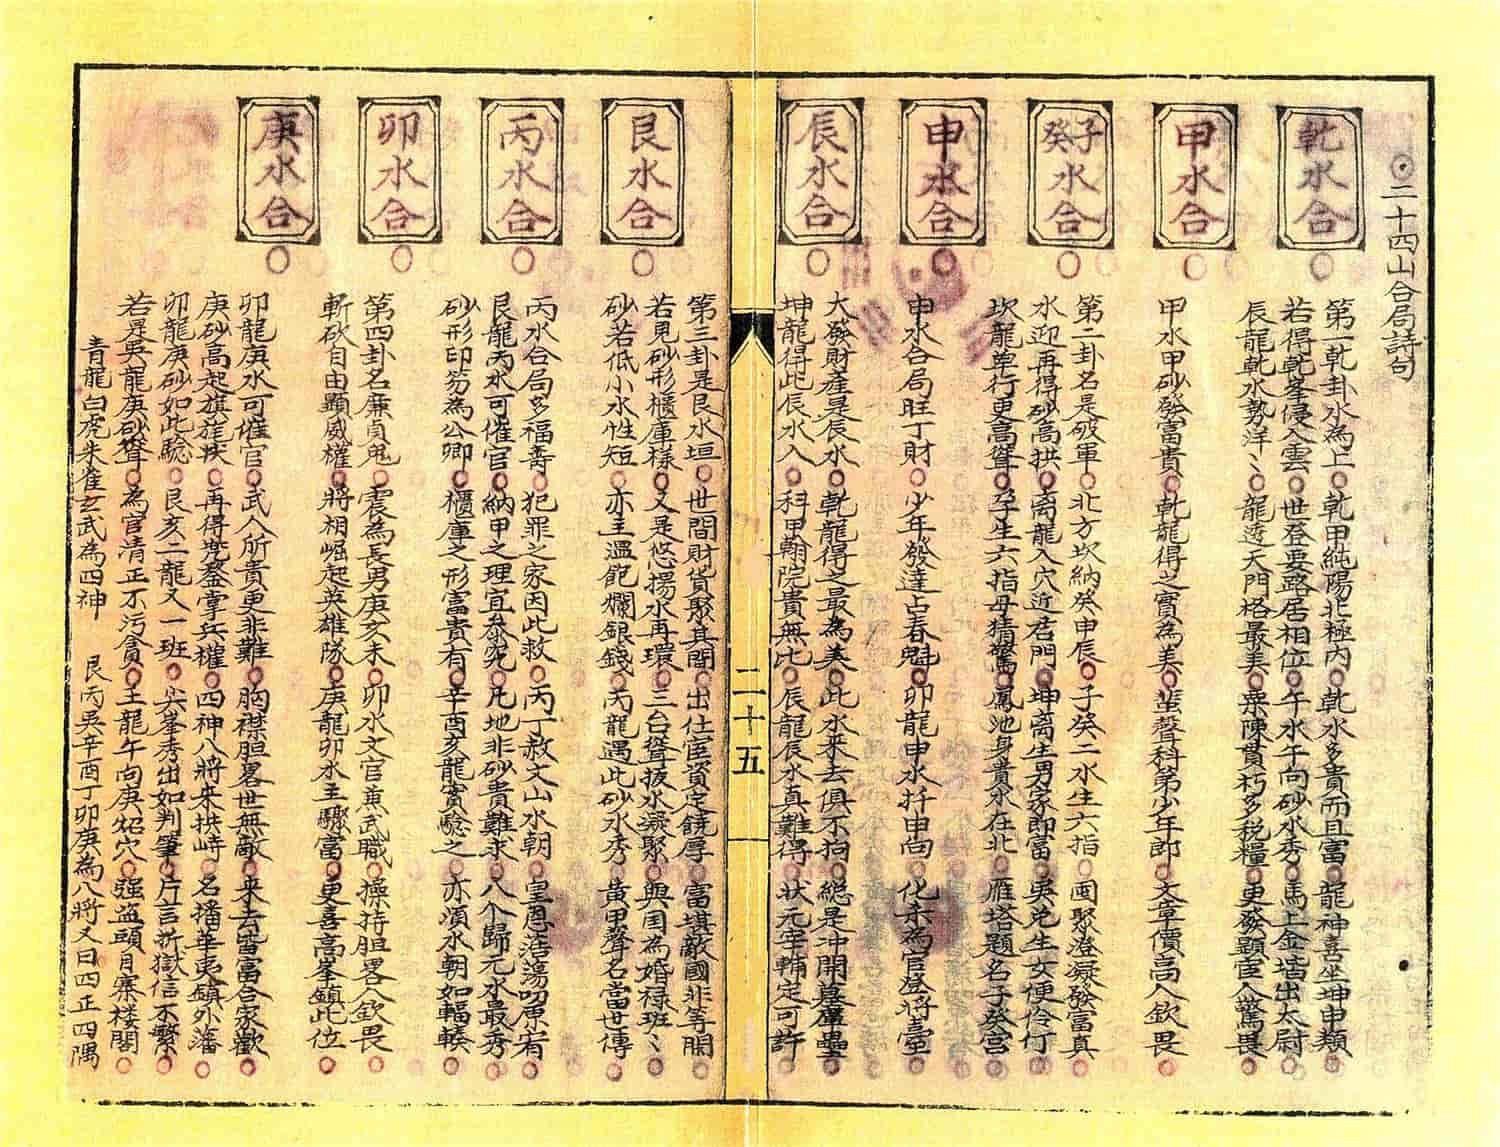 二十四山合局詩句
乾水合
第一乾卦水為上○乾甲純陽北極內○乾水多貴而且富○龍神喜坐坤申類○
若得乾峯侵入雲○世登要路居相位○午水午向砂水秀○馬上金堦出太尉○
辰龍乾水勢洋〻○龍透天門格最美○粟陳貫朽多稅糧○更發顯宦人驚畏○
甲水合
甲水甲砂發富貴○乾龍得之實為美○蜚聲科第少年郎○文章價高人欽畏○
子癸水合
第二卦名是破軍○北方坎納癸申辰○子癸二水生六指○囬聚澄凝發富真○
水迎再得砂高拱○离龍入穴近君門○坤离生男家即富○兌生女便伶仃○
坎龍單行更高聳○孕生六指母猜驚○鳳池身貴水在北○雁塔題名子癸宮○
申水合
申水合局旺丁財○少年發達占春魁○卯龍申水扦申向○化眾為官登將臺○
辰水合
大發財產是辰水○乾龍得之最為美○此水來去俱不拘○總是冲開墓庫壘○
坤龍得此辰水入○科甲翰院貴無比○辰龍辰水真難得○狀元宰輔定可許○
二十五
艮水合
第三卦是艮水垣○世間財貨聚其間○出仕宦資定饒厚○富堪敵國非等閒○
若見砂形櫃庫樣○又是悠揚水再環○三台聳拔水凝聚○與国為婚祿班〻○
砂若低小水性短○亦主溫飽爛銀錢○丙龍遇此砂水秀○黃甲聲名當世傳○
丙水合
丙水合局多福壽○犯罪之家因此救○丙丁赦文山水朝○皇恩浩蕩叨原宥○
艮龍丙水可催官○納甲之理宜叅究○凡地非砂貴難求○八个歸元水最秀○
砂形印笏為公卿○櫃庫之形富貴有○辛酉亥龍賓驗之○亦須水朝如輻輳○
卯水合
第四卦名廉貞鬼○震為長男庚亥未○卯水文官蒹武職○操持胆畧人欽畏○
斬砍自由顯威權○將相崛起英雄隊○庚龍卯水主驟富○更喜高峯鎮此位○
庚水合
卯龍庚水可催官○武人所貴更非難○胸襟胆畧世無敵○來去皆富合家歡○
庚砂高起旗旌族○再得兜鍪掌兵權○四神八將來拱峙○名播華夷鎮外藩○
卯龍庚砂如此驗○艮亥二龍又一班○尖峯秀出如判筆○片言折獄信不繁○
若是巽龍庚砂聳○為官清正不污貪○壬龍午向庚砂穴○强盜頭目寨楼閣○
青龍白虎朱雀玄武為四神　艮丙巽辛酉丁卯庚為八將又曰四正四隅